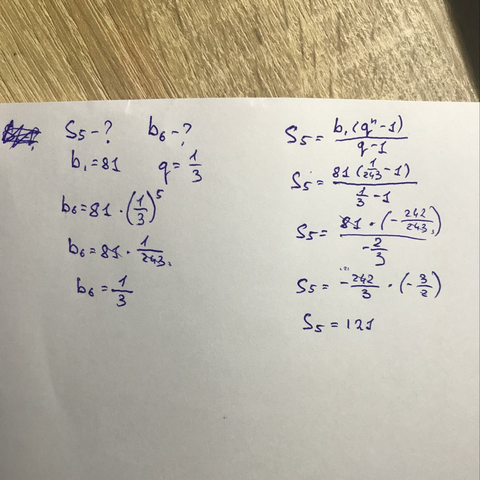 S₅ - ? b₆ - ?
b₁ = 81 q = 1/3
b₆ = 81 · (1/3)⁵
b₆ = 81 · 1/243
b₆ = 1/3
S₅ = b₁(qⁿ - 1)/(q - 1)
S₅ = 81(1/243 - 1)/(1/3 - 1)
S₅ = 81 · (-242/243)/(-2/3)
S₅ = -242/3 · (-3/2)
S₅ = 121